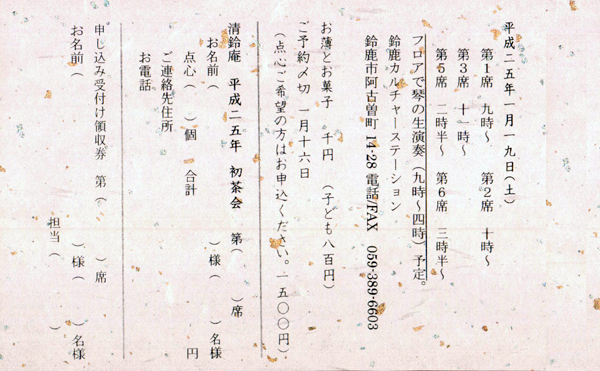 平成二五年一月一九日（土）
第1席　九時～　　第2席　十時～
第3席　十一時～
第5席　二時半～　第6席　三時半～
フロアで琴の生演奏（九時～四時）予定。
鈴鹿カルチャーステーション
鈴鹿市阿古曽町 14-28 電話/FAX　059-389-6603
お薄とお菓子　千円　（子ども八百円）
ご予約〆切　一月十六日
（点心ご希望の方はお申込ください。一五〇〇円）
清鈴庵　平成二五年　初茶会　第（　　　）席
お名前（　　　　　　　　）様（　　　）名様
点心（　　）個　合計　　　　　　　　円
ご連絡先住所
お電話
申し込み受付け領収券　第（　　　）席
お名前（　　　　　　　）様（　　　）名様
担当（　　　　）